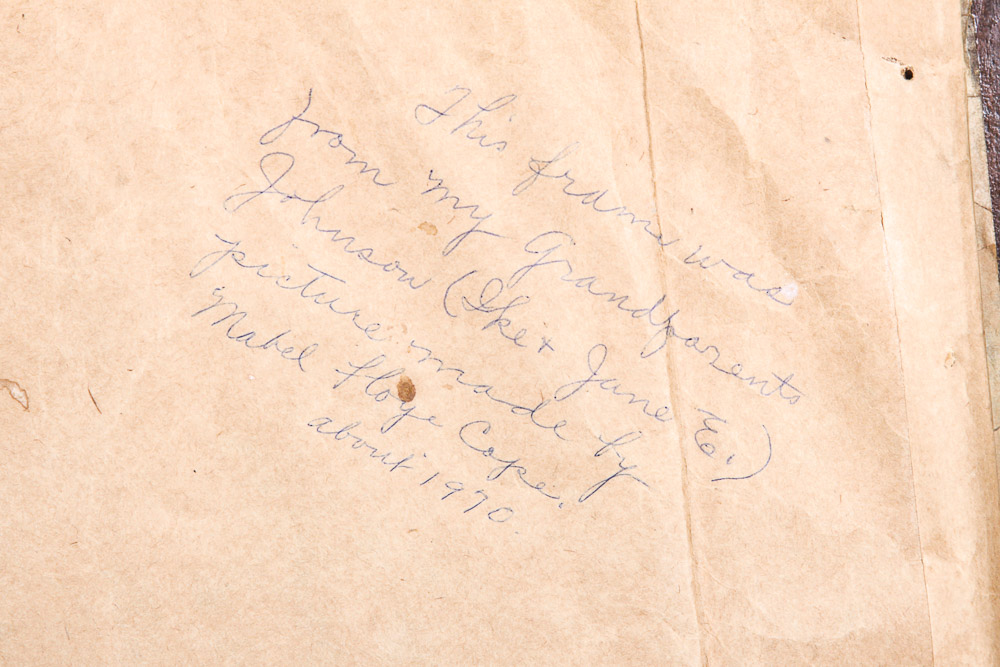 This frame was
from my Grandparents
Johnson (Ike + June E.)
picture made by
Mabel Floye Cope.
about 1970